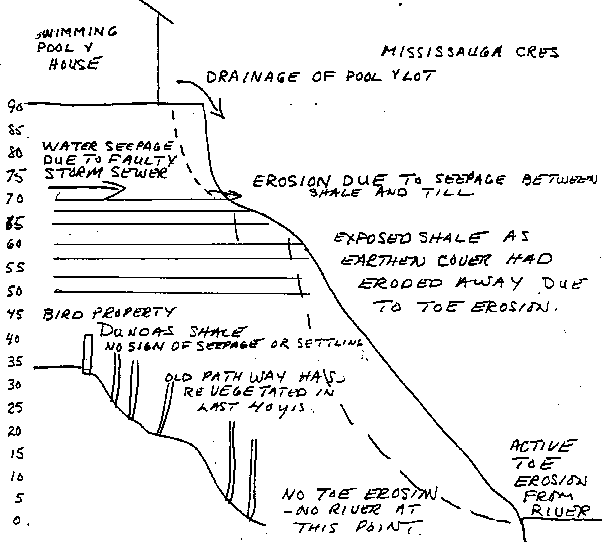 SWIMMING
POOL &
HOUSE
MISSISSAUGA CRES
DRAINAGE OF POOL & LOT
90
85
80
75
70
65
60
55
50
45
40
35
30
25
20
15
10
5
0.
WATER SEEPAGE
DUE TO FAULTY
STORM SEWER
EROSION DUE TO SEEPAGE BETWEEN
SHALE AND TILL.
EXPOSED SHALE AS
EARTHEN COVER HAD
ERODED AWAY DUE
TO TOE EROSION.
BIRD PROPERTY
DUNDAS SHALE
NO SIGN OF SEEPAGE OR SETTLING
OLD PATH WAY HAS
REVEGETATED IN
LAST 40 YRS.
NO TOE EROSION
-NO RIVER AT
THIS POINT.
ACTIVE
TOE
EROSION
FROM
RIVER